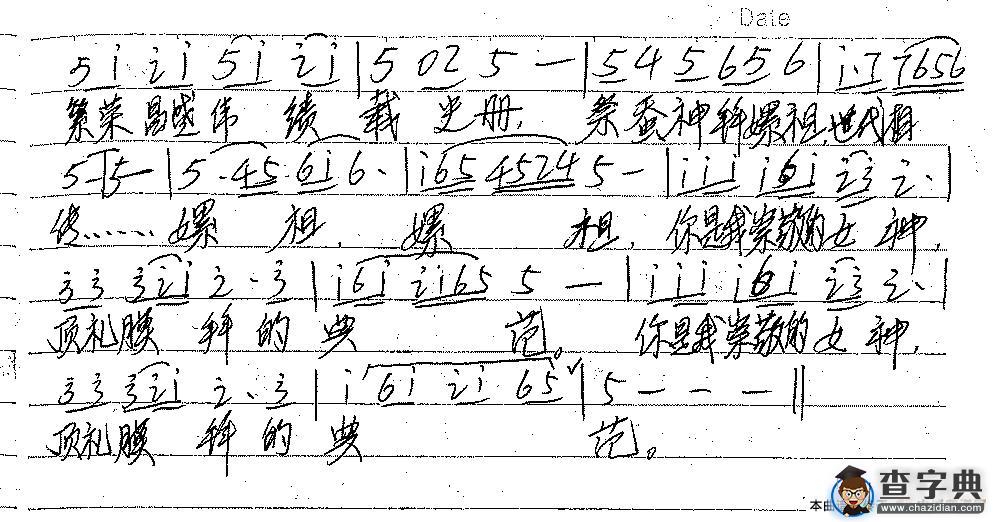 Date
5 i 2̇ i 5 i 2̇ i | 5 02 5 — | 5 4 5 6 5 6 | i · i 7656
繁荣昌盛伟 绩 载 史册, 祭蚕神拜嫘祖,世代相
5 5 — | 5 · 45 · 6i 6 · | i65 4524 5 — | i i i i 6 i 2̇ 3̇ 2̇ · |
传…… 嫘 祖, 嫘 祖, 你是我崇敬的女神,
3̇ 3̇ 3̇ 2̇ i 2̇ · 3̇ | i 6 i 2̇ i 6 5 5 — | i i i i 6 i 2̇ 3̇ 2̇ · |
顶礼膜 拜的典 范。 你是我崇敬的女神,
3̇ 3̇ 3̇ 2̇ i 2̇ · 3̇ | i 6 i 2̇ i 6 5 ∨ | 5 — — — ‖
顶礼膜 拜的典 范。
本曲
查字典
www.chazidian.com